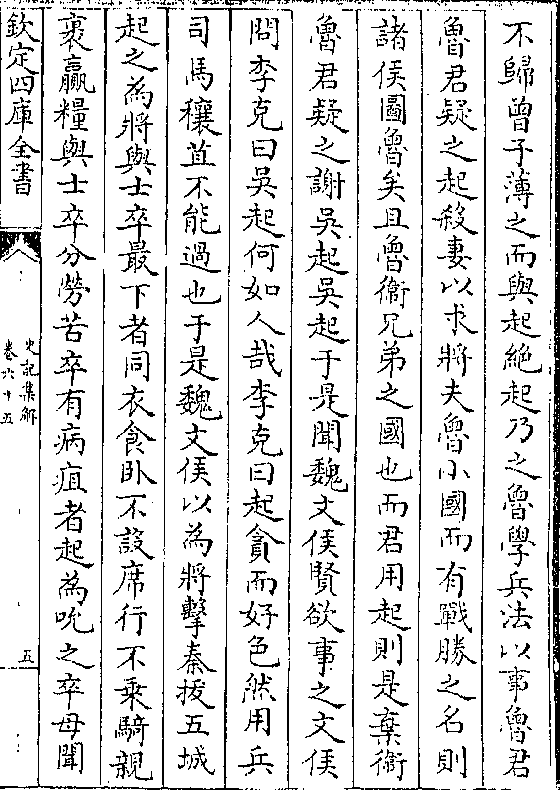 不歸曾子薄之而與起絶起乃之魯學兵法以事魯君
魯君疑之起殺妻以求將夫魯小國而有戰勝之名則
諸侯圖魯矣且魯衞兄弟之國也而君用起則是棄衞
魯君疑之謝吳起吳起于是聞魏文侯賢欲事之文侯
問李克曰吳起何如人哉李克曰起貪而好色然用兵
司馬穰苴不能過也于是魏文侯以為將擊秦拔五城
起之為將與士卒最下者同衣食卧不設席行不乗騎親
裹贏糧與士卒分勞苦卒有病疽者起為吮之卒母聞
欽定四庫全書
史記集解
卷六十五
五